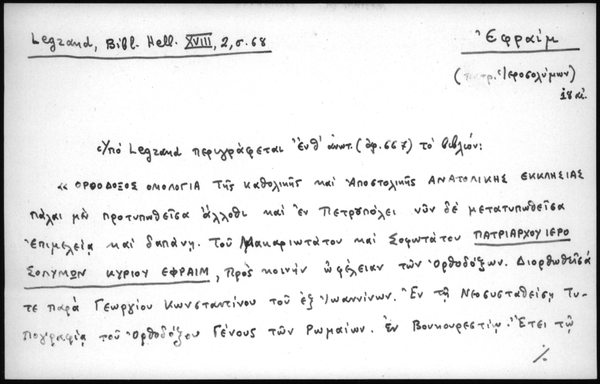 Legrand, Bibl. Hell. XVIII, 2, σ. 68
Ἐφραίμ
(πατρ. Ἱεροσολύμων)
18 αἰ.
Ὑπό Legrand περιγράφεται ἔνθ' ἀνωτ. (ἀρ. 667) τό βιβλίον:
« ΟΡΘΟΔΟΞΟΣ ΟΜΟΛΟΓΙΑ Τῆς Καθολικῆς καί Ἀποστολικῆς ΑΝΑΤΟΛΙΚΗΣ ΕΚΚΛΗΣΙΑΣ
πάλαι μέν προτυπωθεῖσα ἄλλοθι καί ἐν Πετρουπόλει νῦν δέ μετατυπωθεῖσα
ἐπιμελείᾳ καί δαπάνῃ. Τοῦ Μακαριωτάτου καί Σοφωτάτου ΠΑΤΡΙΑΡΧΟΥ ΙΕΡΟ
ΣΟΛΥΜΩΝ ΚΥΡΙΟΥ ΕΦΡΑΙΜ, Πρός κοινήν ὠφέλειαν τῶν Ὀρθοδόξων. Διορθωθεῖσά
τε παρά Γεωργίου Κωνσταντίνου τοῦ ἐξ Ἰωαννίνων. Ἐν τῇ Νεοσυσταθείσῃ Τυ-
πογραφίᾳ τοῦ Ὀρθοδόξου Γένους τῶν Ρωμαίων. ἐν Βουκουρεστίῳ. Ἔτει τῷ
./.